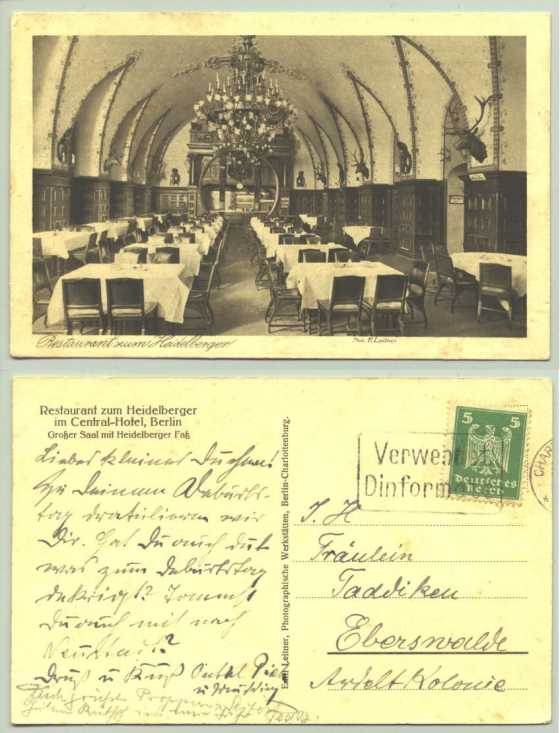 Restaurant zum Heidelberger
Phot. E. Leitner
Restaurant zum Heidelberger
im Central-Hotel, Berlin
Großer Saal mit Heidelberger Faß
Liebes kleines
Zu Deinem Geburts-
tag gratulieren wir
Dir. Hat Du auch gut
was zum Geburtstag
gekriegt? Kommst
Du auch mit nach
Neustadt?
Gruß u Kuß Onkel
u
Emil Leitner, Photographische Werkstätten, Berlin-Charlottenburg.
Verwe
Dinform
5 5
Deutsches
Reich
CHAR
Fräulein
Taddiken
Eberswalde
Ardelt Kolonie